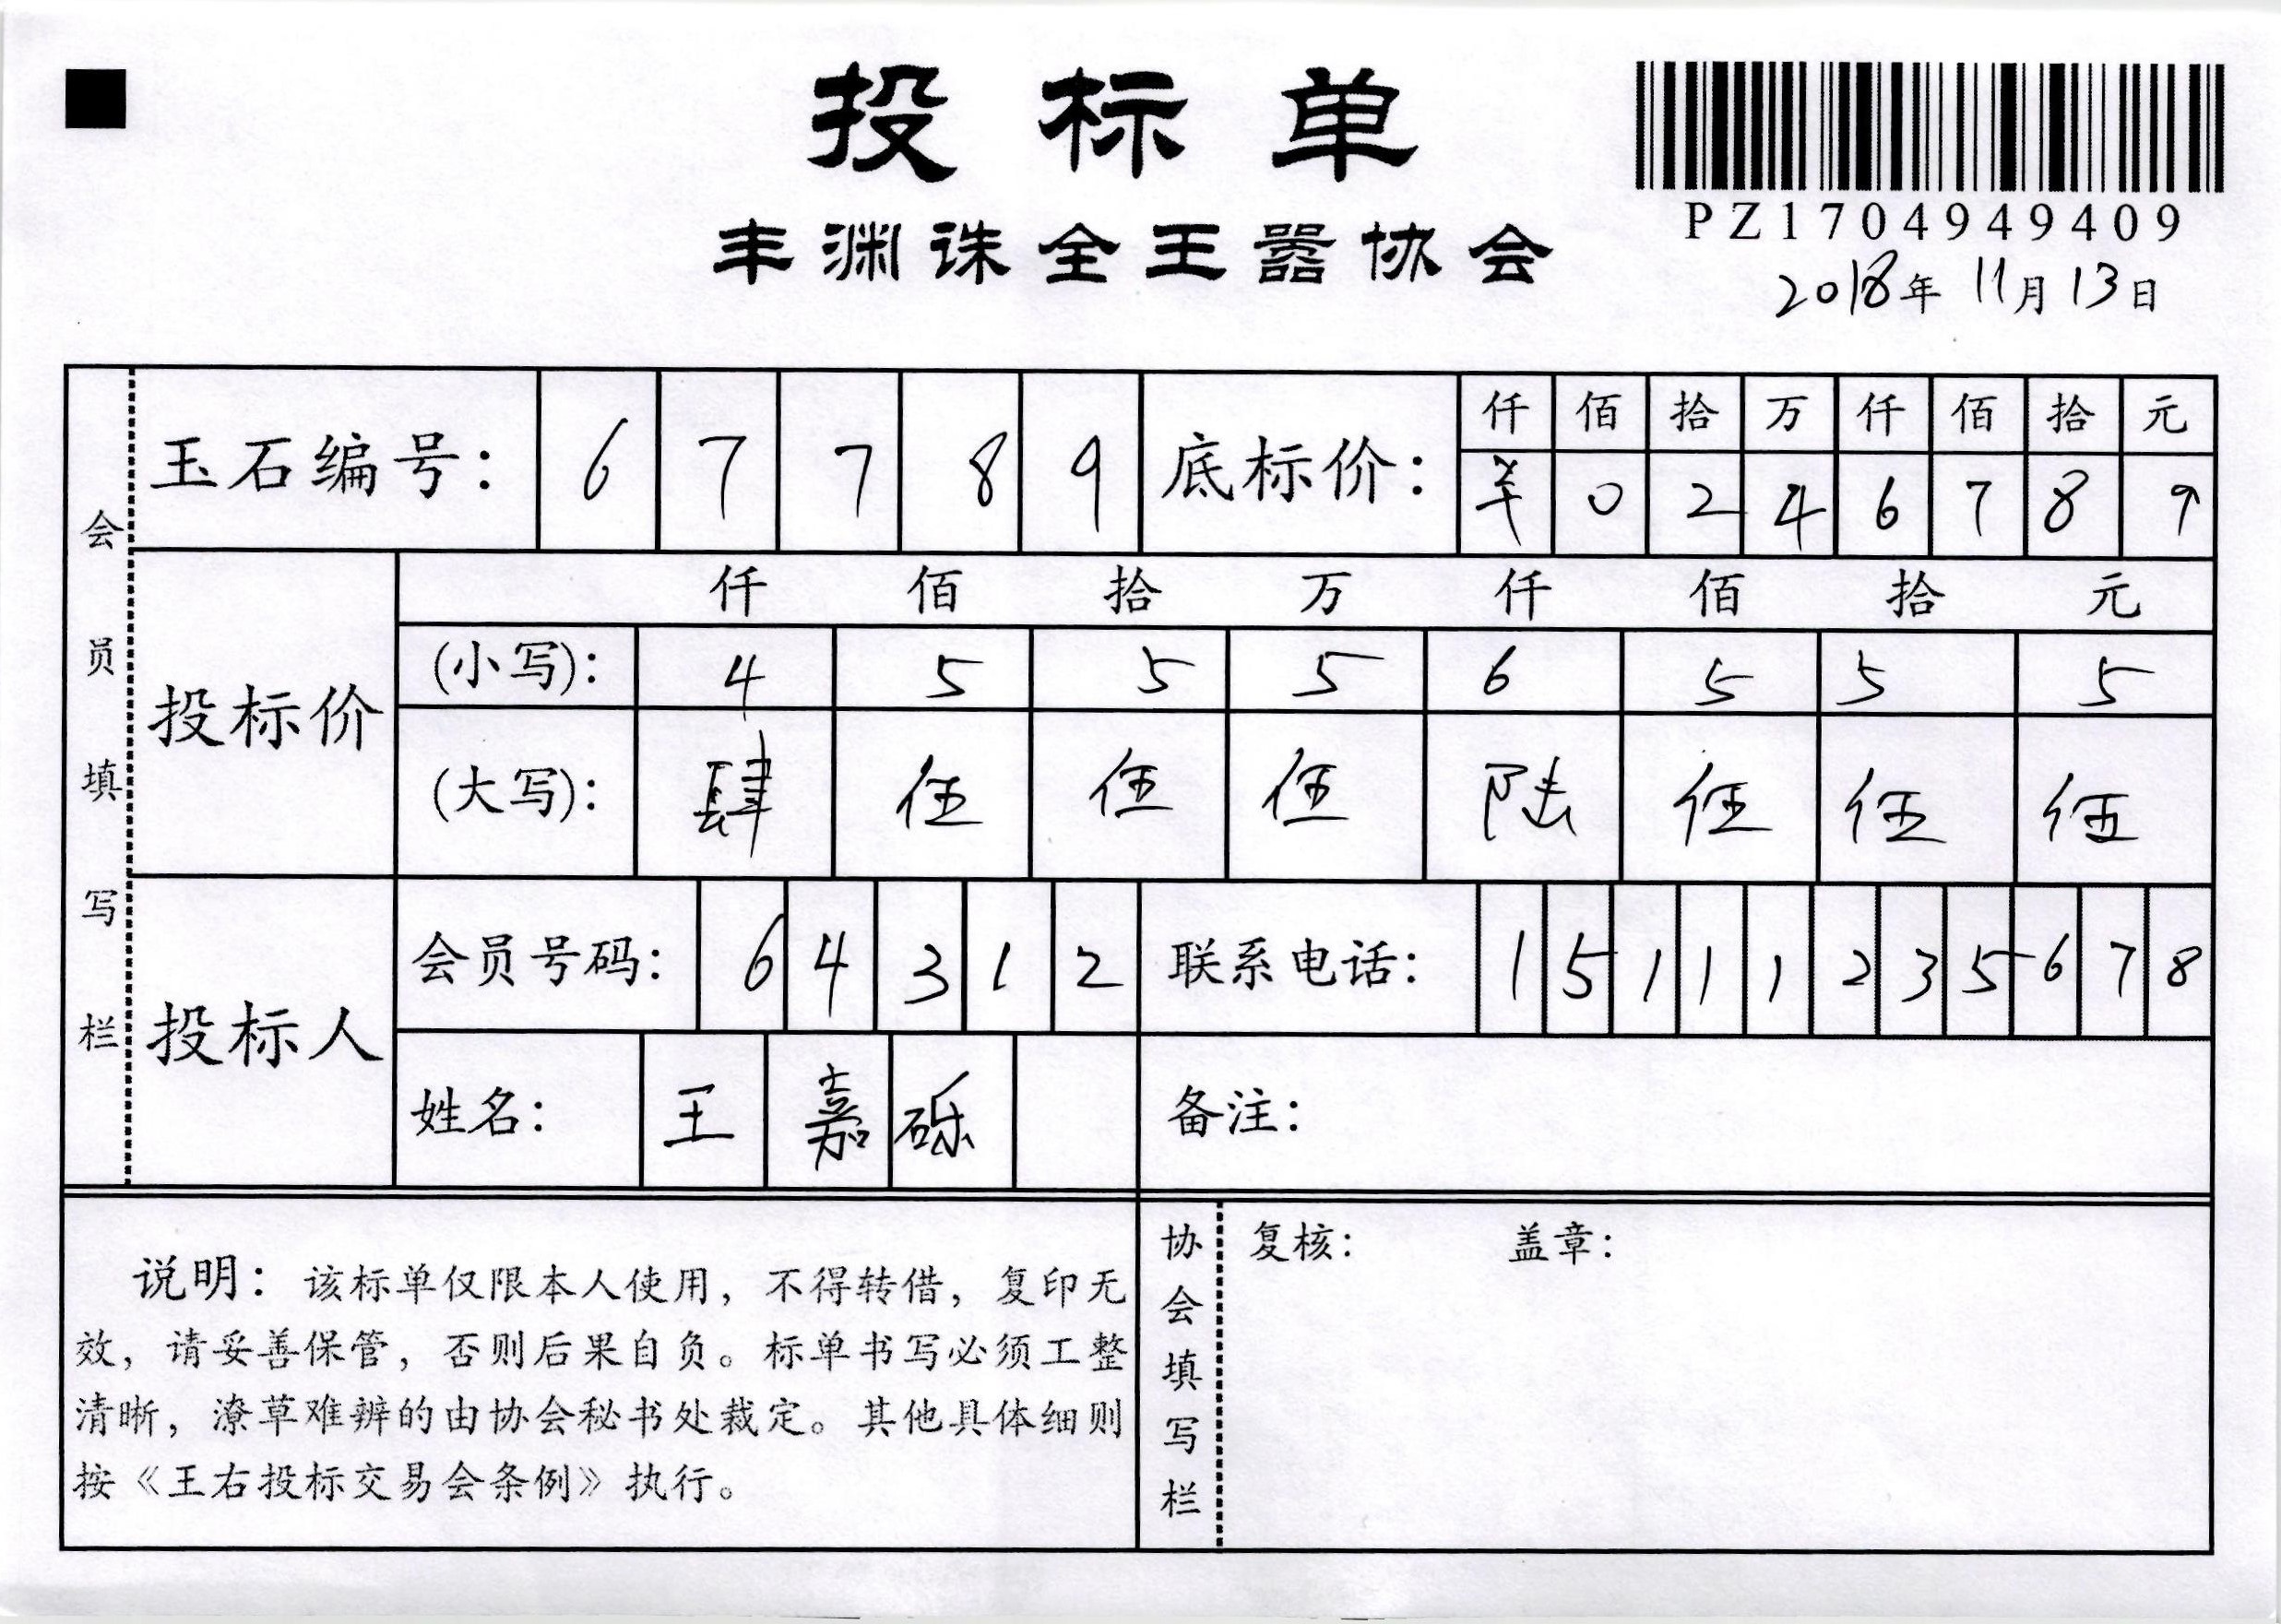 投标单
丰渊诛全王嚣协会
PZ1704949409
2018年 11月 13日
会员填写栏
玉石编号： 6 7 7 8 9
底标价： 仟 佰 拾 万 仟 佰 拾 元
0 2 4 6 7 8 9
投标价
仟 佰 拾 万 仟 佰 拾 元
(小写)： 4 5 5 5 6 5 5 5
(大写)： 肆 伍 伍 伍 陆 伍 伍 伍
投标人
会员号码： 6 4 3 1 2
联系电话： 1 5 1 1 1 2 3 5 6 7 8
姓名： 王 嘉 砾
备注：
说明：该标单仅限本人使用，不得转借，复印无
效，请妥善保管，否则后果自负。标单书写必须工整
清晰，潦草难辨的由协会秘书处裁定。其他具体细则
按《王右投标交易会条例》执行。
协会填写栏
复核： 盖章：